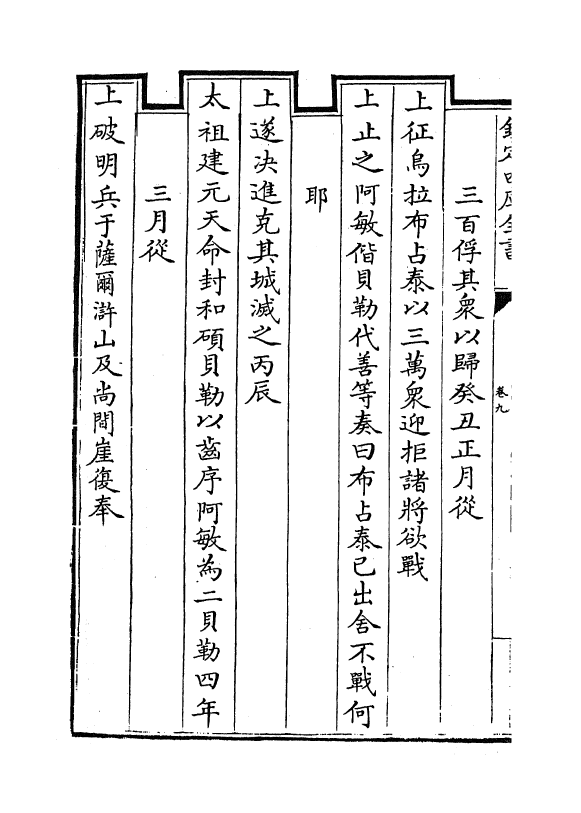 欽定四庫全書
卷九
三百俘其衆以歸癸丑正月從
上征烏拉布占泰以三萬衆迎拒諸將欲戰
上止之阿敏偕貝勒代善等奏曰布占泰已出舍不戰何
耶
上遂決進克其城滅之丙辰
太祖建元天命封和碩貝勒以齒序阿敏為二貝勒四年
三月從
上破明兵于薩爾滸山及尚間崖復奉